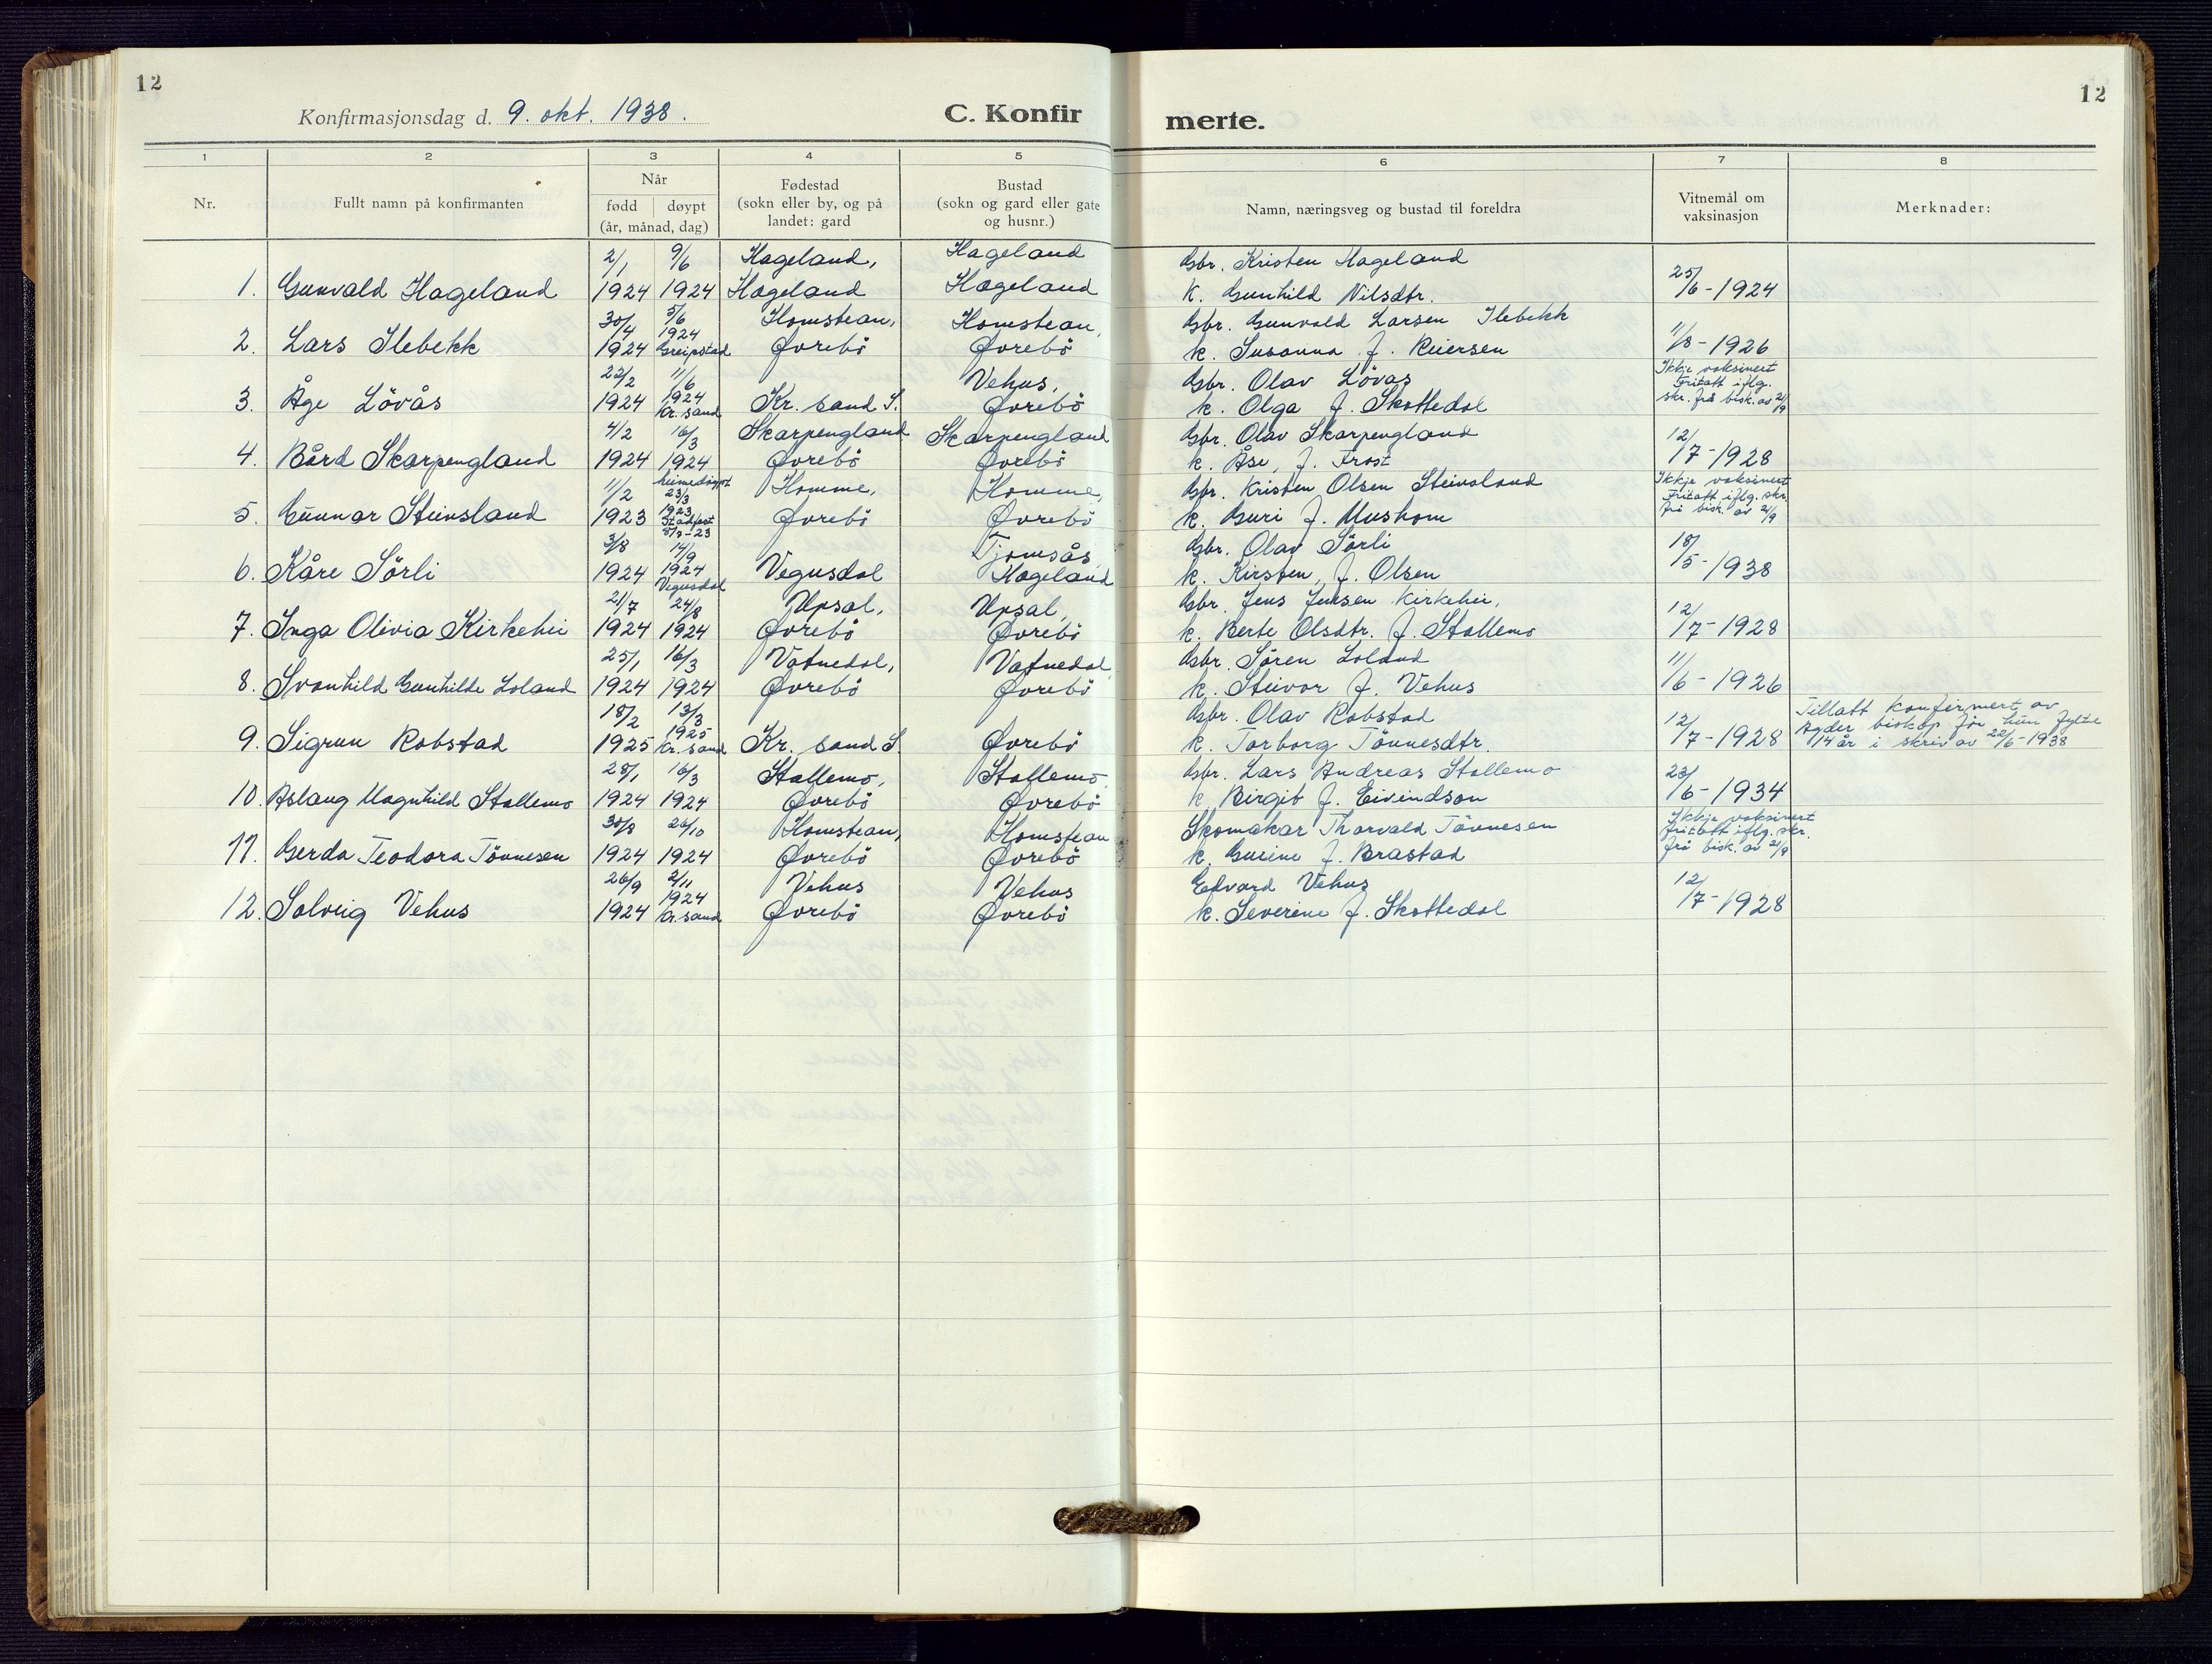 12
12
Konfirmasjonsdag d. 9. okt. 1938.
C. Konfir
merte.
1 2 3 4 5 6 7 8
Nr.
Fullt namn på konfirmanten
Når
fødd
døypt
(år, månad, dag)
Fødestad
(sokn eller by, og på
landet: gard
Bustad
(sokn og gard eller gate
og husnr.)
Namn, næringsveg og bustad til foreldra
Vitnemål om
vaksinasjon
Merknader:
2/1 9/6 Hageland, Hageland Gbr. Kristen Hageland
1. Gunvald Hageland 1924 1924 Hægeland Hægeland k. Gunhild Nilsdtr. 25/6-1924
30/4 5/6 Homstean, Homstean, Gbr. Gunvald Larsen Ilebekk
2. Lars Ilebekk 1924 1924 Greipstad Øvrebö Øvrebö k. Susanna f. Reiersen 11/8-1926
22/2 11/6 Vehus, Gbr. Olav Lövås Ikkje vaksinert
3. Åge Lövås 1924 1924 Kr. sand Kr. sand S. Øvrebö k. Olga f. Skottedal Fritatt iflg. skr. frå bisk. av 21/9
4/2 16/3 Skarpengland Skarpengland Gbr. Olav Skarpengland
4. Bård Skarpengland 1924 1924 Øvrebö Øvrebö k. Åse, f. Frost 12/7-1928
11/2 heimedöypt 23/3 Homme, Homme, Gbr. Kristen Olsen Steinsland Ikkje vaksinert
5. Gunnar Steinsland 1923 1923 Stadfest 8/7-23 Øvrebö Øvrebö k. Guri f. Mushom Fritatt iflg. skr. frå bisk. av 21/9
3/8 14/9 Tjomsås Gbr. Olav Sörli
6. Kåre Sörli 1924 1924 Vegusdal Vegusdal Hægeland k. Kirsten, f. Olsen 18/5-1938
21/7 24/8 Upsal, Upsal, Gbr. Jens Jensen Kirkehei,
7. Inga Olivia Kirkehei 1924 1924 Øvrebö Øvrebö k. Berte Olsdtr. f. Stallemo 12/7-1928
25/1 16/3 Vatnedal, Vatnedal, Gbr. Sören Loland
8. Svanhild Gunhilde Loland 1924 1924 Øvrebö Øvrebö k. Steivor f. Vehus 11/6-1926
18/2 13/3 Gbr. Olav Robstad Tillatt konfirmert av
9. Sigrun Robstad 1925 1925 Kr. sand Kr. sand S. Øvrebö k. Torborg Tönnesdtr. 12/7-1928 Agder biskop för hun fylte
14 år i skriv av 22/6-1938
28/1 16/3 Stallemo, Stallemo, Gbr. Lars Andreas Stallemo
10. Aslaug Magnhild Stallemo 1924 1924 Øvrebö Øvrebö k. Birgit f. Eivindson 23/6-1934
30/8 26/10 Homstean, Homstean Skomakar Thorvald Tönnesen Ikkje vaksinert
11. Gerda Teodora Tönnesen 1924 1924 Øvrebö Øvrebö k. Gurine f. Brastad fritatt iflg. skr. frå bisk. av 21/9
26/9 2/11 Vehus Vehus Edvard Vehus
12. Solveig Vehus 1924 1924 Kr. sand Øvrebö Øvrebö k. Severine f. Skottedal 12/7-1928